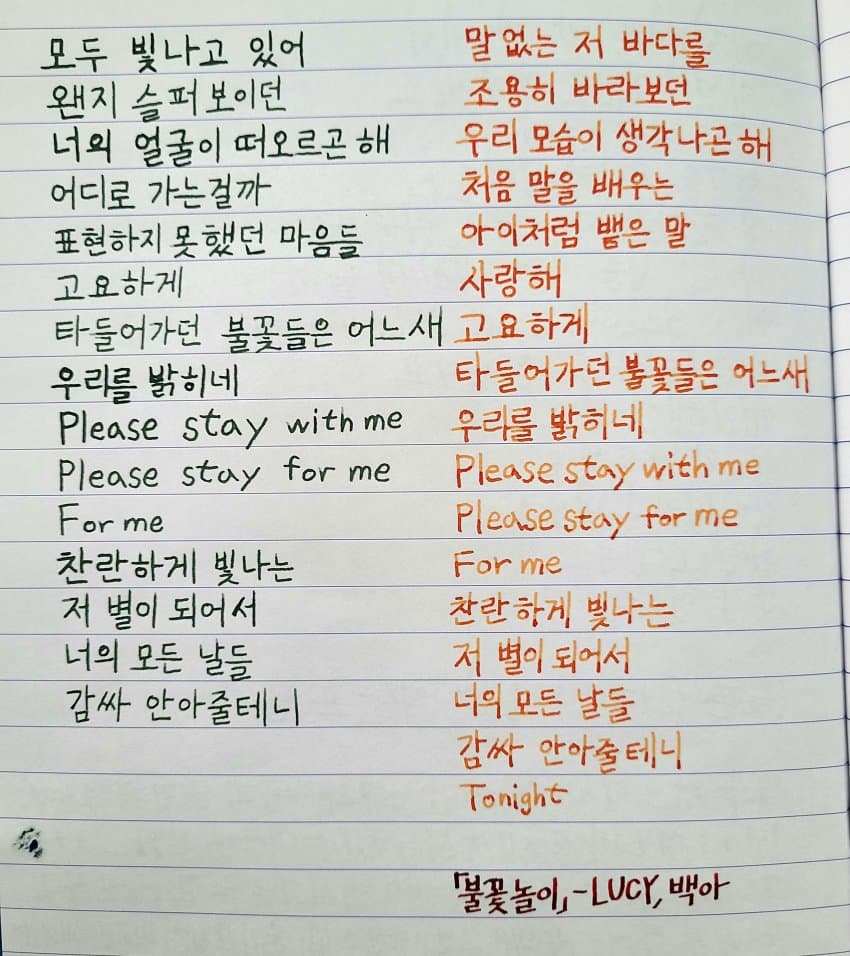 모두 빛나고 있어
왠지 슬퍼보이던
너의 얼굴이 떠오르곤해
어디로 가는걸까
표현하지 못했던 마음들
고요하게
타들어가던 불꽃들은 어느새
우리를 밝히네
Please stay with me
Please stay for me
For me
찬란하게 빛나는
저 별이 되어서
너의 모든 날들
감싸 안아줄테니
말없는 저 바다를
조용히 바라보던
우리 모습이 생각나곤해
처음 말을 배우는
아이처럼 뱉은 말
사랑해
고요하게
타들어가던 불꽃들은 어느새
우리를 밝히네
Please stay with me
Please stay for me
For me
찬란하게 빛나는
저 별이 되어서
너의 모든 날들
감싸 안아줄테니
Tonight
「불꽃놀이」-LUCY, 백아